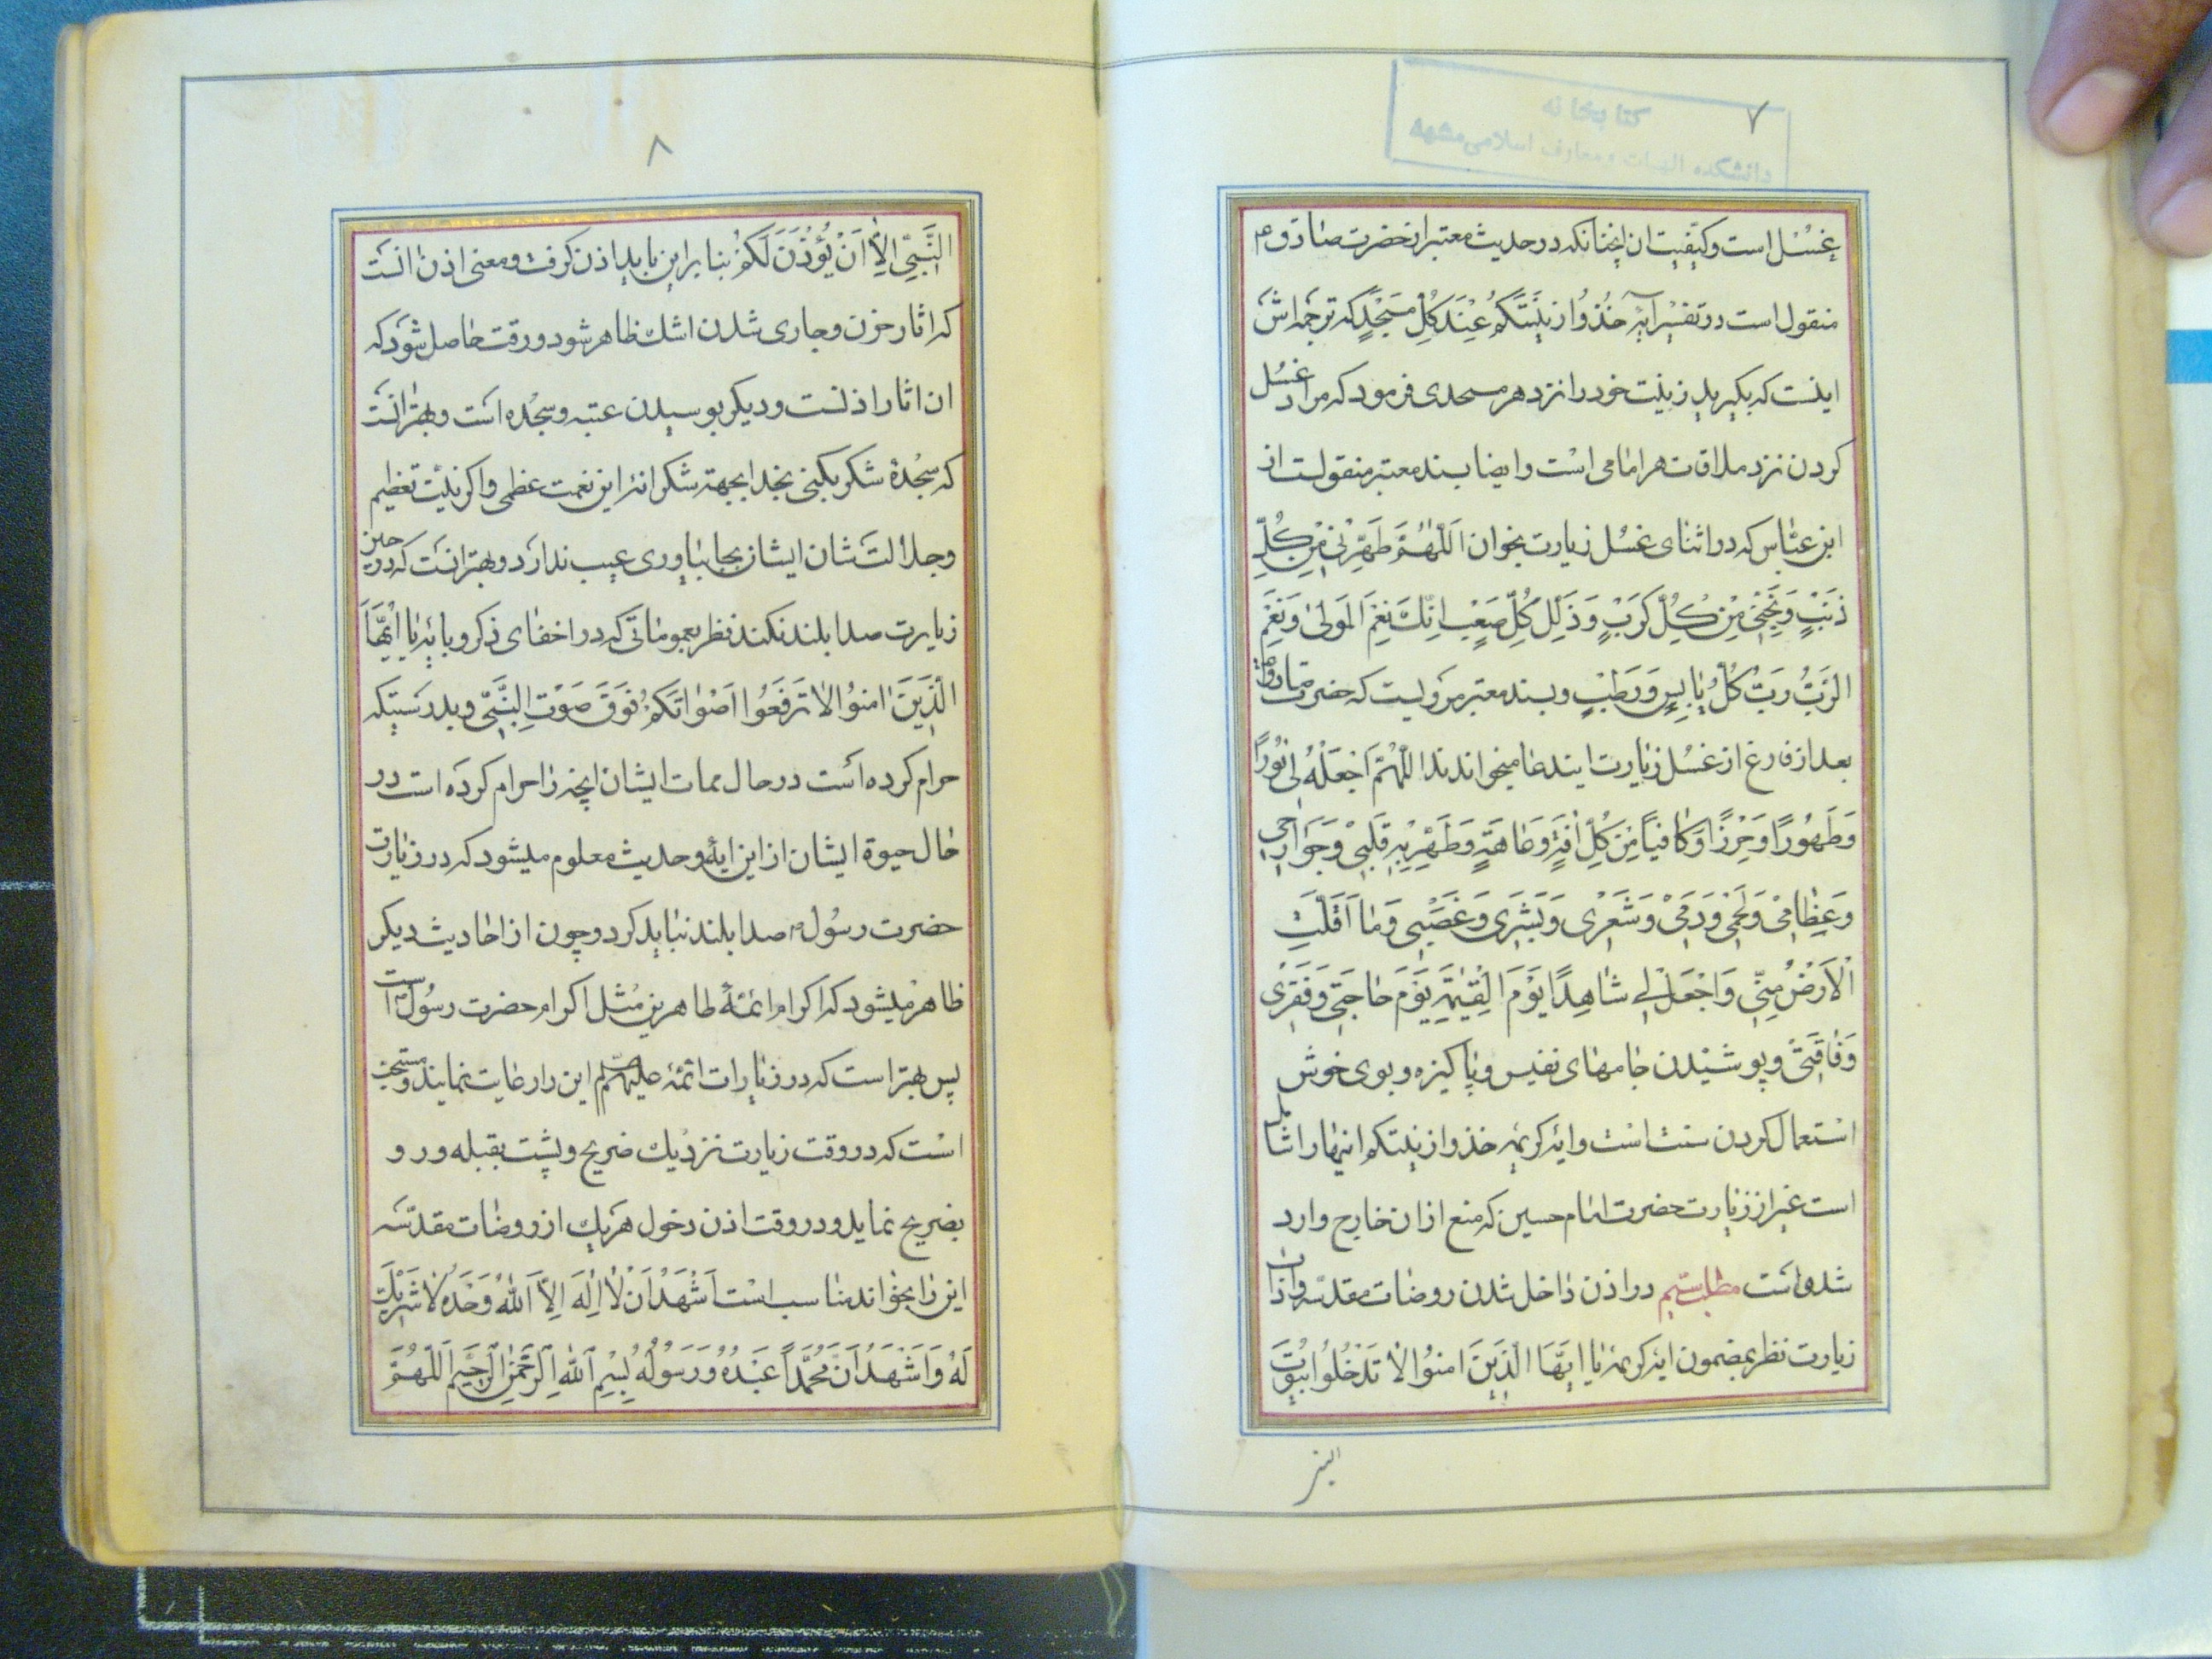 ٧
غسل است و کیفیت ان چنانکه در حدیث معتبر از حضرت صادق ع
منقول است در تفسیر آیهٔ خُذُوا زینَتَکُم عِندَ کُلِّ مَسجِدٍ که ترجمه اش
اینست که بگیرید زینت خود را نزد هر مسجدی فرمود که مراد غسل
کردن نزد ملاقات هر امامی است و ایضا بسند معتبر منقولست از
ابن عباس که در اثنای غسل زیارت بخوان اَللّهُمَّ طَهِّرْنی مِن کُلِّ
ذَنبٍ وَ نَجِّنی مِن کُلِّ کَربٍ وَ ذَلِّل کُلَّ صَعبٍ اِنَّکَ نِعمَ المَولی وَ نِعمَ
الرَّبُّ رَبُّ کُلِّ یابِسٍ وَ رَطبٍ و بسند معتبر مرویست که حضرت صادق ع
بعد از فارغ از غسل زیارت ایندعا میخواندند اَللّهُمَّ اجعَلهُ لی نُورًا
وَ طَهُورًا وَ حِرزًا وَ کافیًا مِن کُلِّ افَةٍ وَ عاهَةٍ وَ طَهِّر بِهِ قَلبی وَ جَوارِحی
وَ عِظامی وَ لَحمی وَ دَمی وَ شَعری وَ بَشَری وَ عَصَبی وَ ما اَقَلَّتِ
الاَرضُ مِنّی وَ اجعَل لی شاهِدًا یَومَ القِیمَةِ یَومَ حاجَتی وَ فَقری
وَ فاقَتی و پوشیدن جامهای نفیس و پاکیزه و بوی خوش
استعمال کردن سنت است و ایه کریمه خذوا زینتکم اینها را شامل
است غیر از زیارت حضرت امام حسین که منع از ان خارج وارد
شده است مطلب سیم در اذن داخل شدن روضات مقدسه و اداب
زیارت نظر بمضمون ایه کریمه یا اَیُّهَا الَّذینَ امنُوا لا تَدخُلُوا بُیُوتَ
النبی
٨
النَّبِیِّ اِلّا اَن یُؤذَنَ لَکُم بنابراین باید اذن گرفت و معنی اذن انست
که اثار حزن و جاری شدن اشک ظاهر شود و رقت حاصل شود که
ان اثار اذنست و دیگر بوسیدن عتبه و سجده است و بهتر انست
که سجدهٔ شکر بکنی بخدا بجهة شکرانه این نعمت عظمی و اگر بنیت تعظیم
و جلالت شان ایشان بجا بیاوری عیب ندارد و بهتر انست که در حین
زیارت صدا بلند نکند نظر بعموماتی که در اخفای ذکر و بایه یا اَیُّهَا
الَّذینَ امنُوا لا تَرفَعُوا اَصواتَکُم فَوقَ صَوتِ النَّبِیِّ و بدرستیکه
حرام کرده است در حال ممات ایشان انچه را حرام کرده است در
حال حیوة ایشان از این ایهٔ و حدیث معلوم میشود که در زیارت
حضرت رسول م صدا بلند نباید کرد و چون از احادیث دیگر
ظاهر میشود که اکرام ائمهٔ طاهرین مثل اکرام حضرت رسول ص است
پس بهتر است که در زیارات ائمهٔ علیهم السلام این را رعایت نمایند و مستحب
است که در وقت زیارت نزدیک ضریح و پشت بقبله و رو
بضریح نماید و در وقت اذن دخول هر یک از روضات مقدسه
این را بخواند مناسب است اَشهَدُ اَن لا اِلهَ اِلّا اللهُ وَحدَهُ لا شَریکَ
لَهُ وَ اَشهَدُ اَنَّ مُحَمَّدًا عَبدُهُ وَ رَسُولُهُ بِسمِ اللهِ الرَّحمنِ الرَّحیمِ اَللّهُمَّ